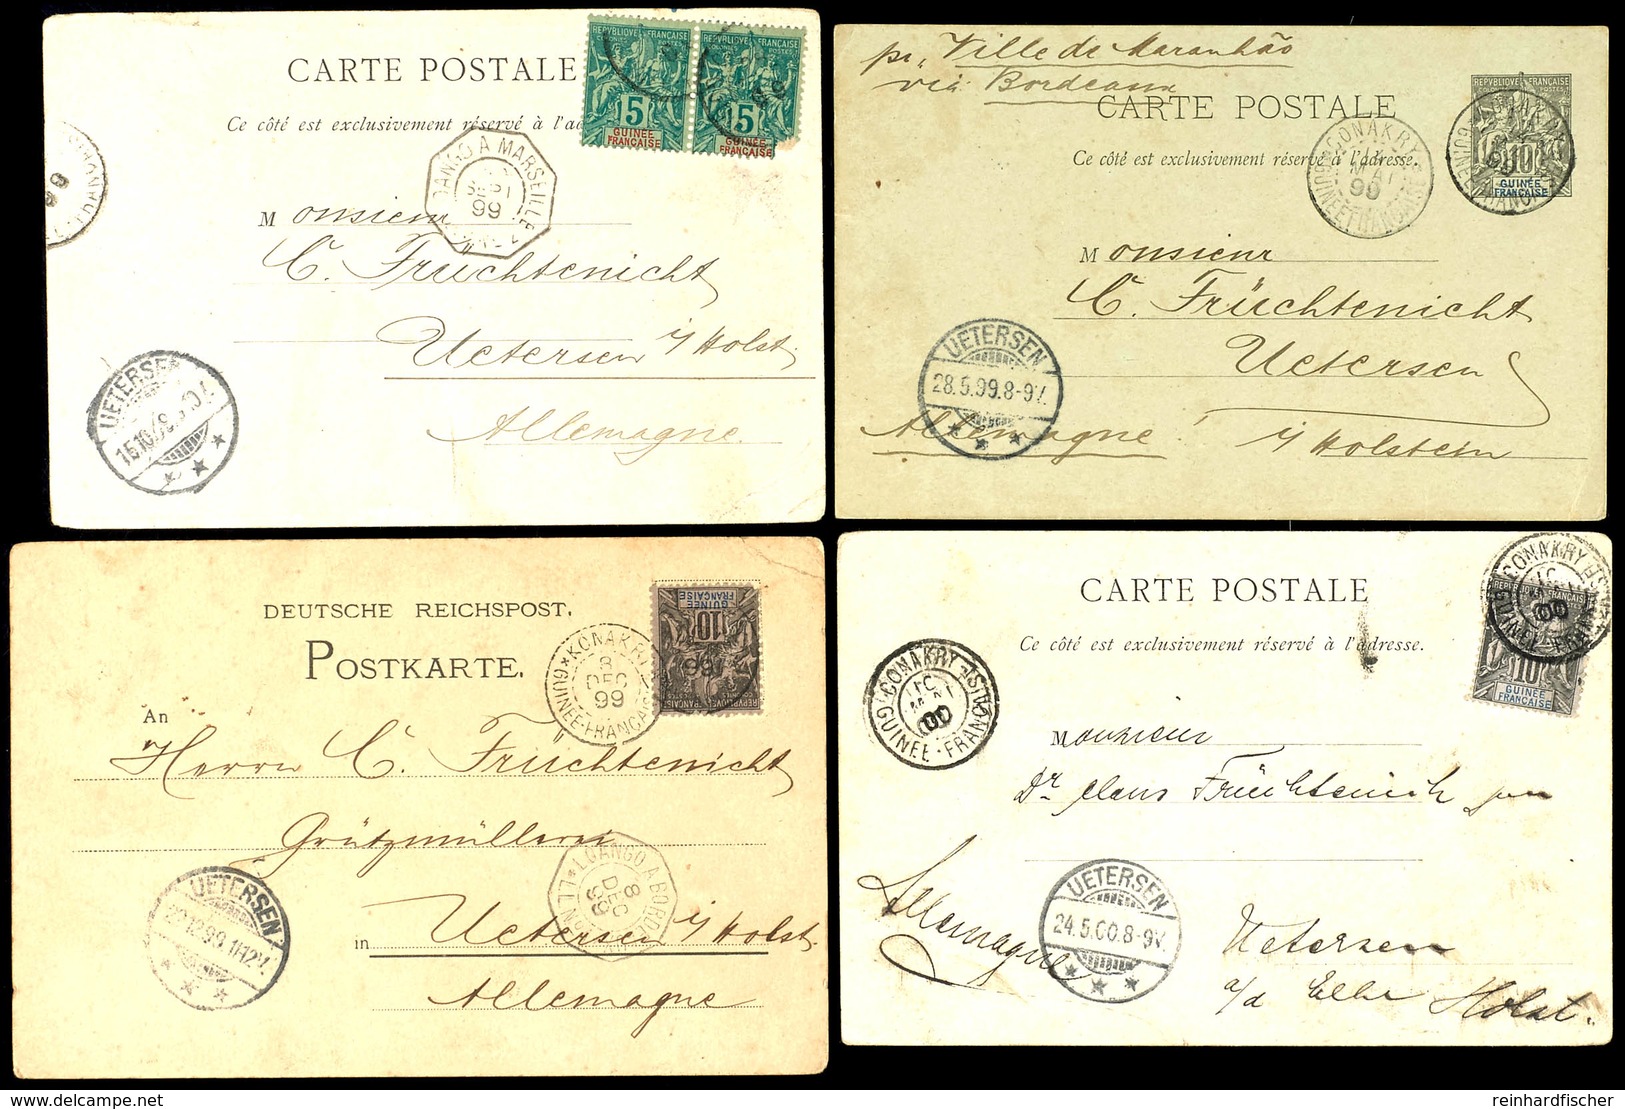 CARTE POSTALE
Ce côté est exclusivement réservé à l'ad
REPVBLIQVE FRANÇAISE
COLONIES POSTES
5
GUINÉE
FRANÇAISE
REPVBLIQVE FRANÇAISE
COLONIES POSTES
5
GUINÉE
FRANÇAISE
LOANGO A MARSEILLE
SEPT
99
Monsieur
C. Früchtenicht
Uetersen i/Holst.
Allemagne.
UETERSEN
15.10.99
pr. Ville de Maranhão
via Bordeaux
CARTE POSTALE
Ce côté est exclusivement réservé à l'adresse.
REPVBLIQVE FRANÇAISE
10
GUINÉE
FRANÇAISE
CONAKRY
MAI
99
GUINÉE FRANÇAISE
Monsieur
C. Früchtenicht
Uetersen
i/Holstein
Allemagne!
UETERSEN
28.5.99.8-9V.
DEUTSCHE REICHSPOST.
POSTKARTE.
REPVBLIQVE FRANÇAISE
10
GUINÉE
FRANÇAISE
KONAKRY
8
DEC
99
GUINÉE-FRANÇAISE
An
Herrn C. Früchtenicht
Grützmüllerei
in Uetersen i/Holst.
Allemagne
LOANGO A BORDE
8
DEC
99
L.L.N
UETERSEN
12.99.11-12V.
CARTE POSTALE
Ce côté est exclusivement réservé à l'adresse.
10
GUINÉE
FRANÇAISE
CONAKRY
00
GUINÉE-FRANÇAISE
CONAKRY
00
GUINÉE-FRANÇAISE
Monsieur
Dr. Claus Früchtenich
Allemagne
Uetersen
a/d Elbe Holst.
UETERSEN
24.5.00.8-9V.
reinhardfischer